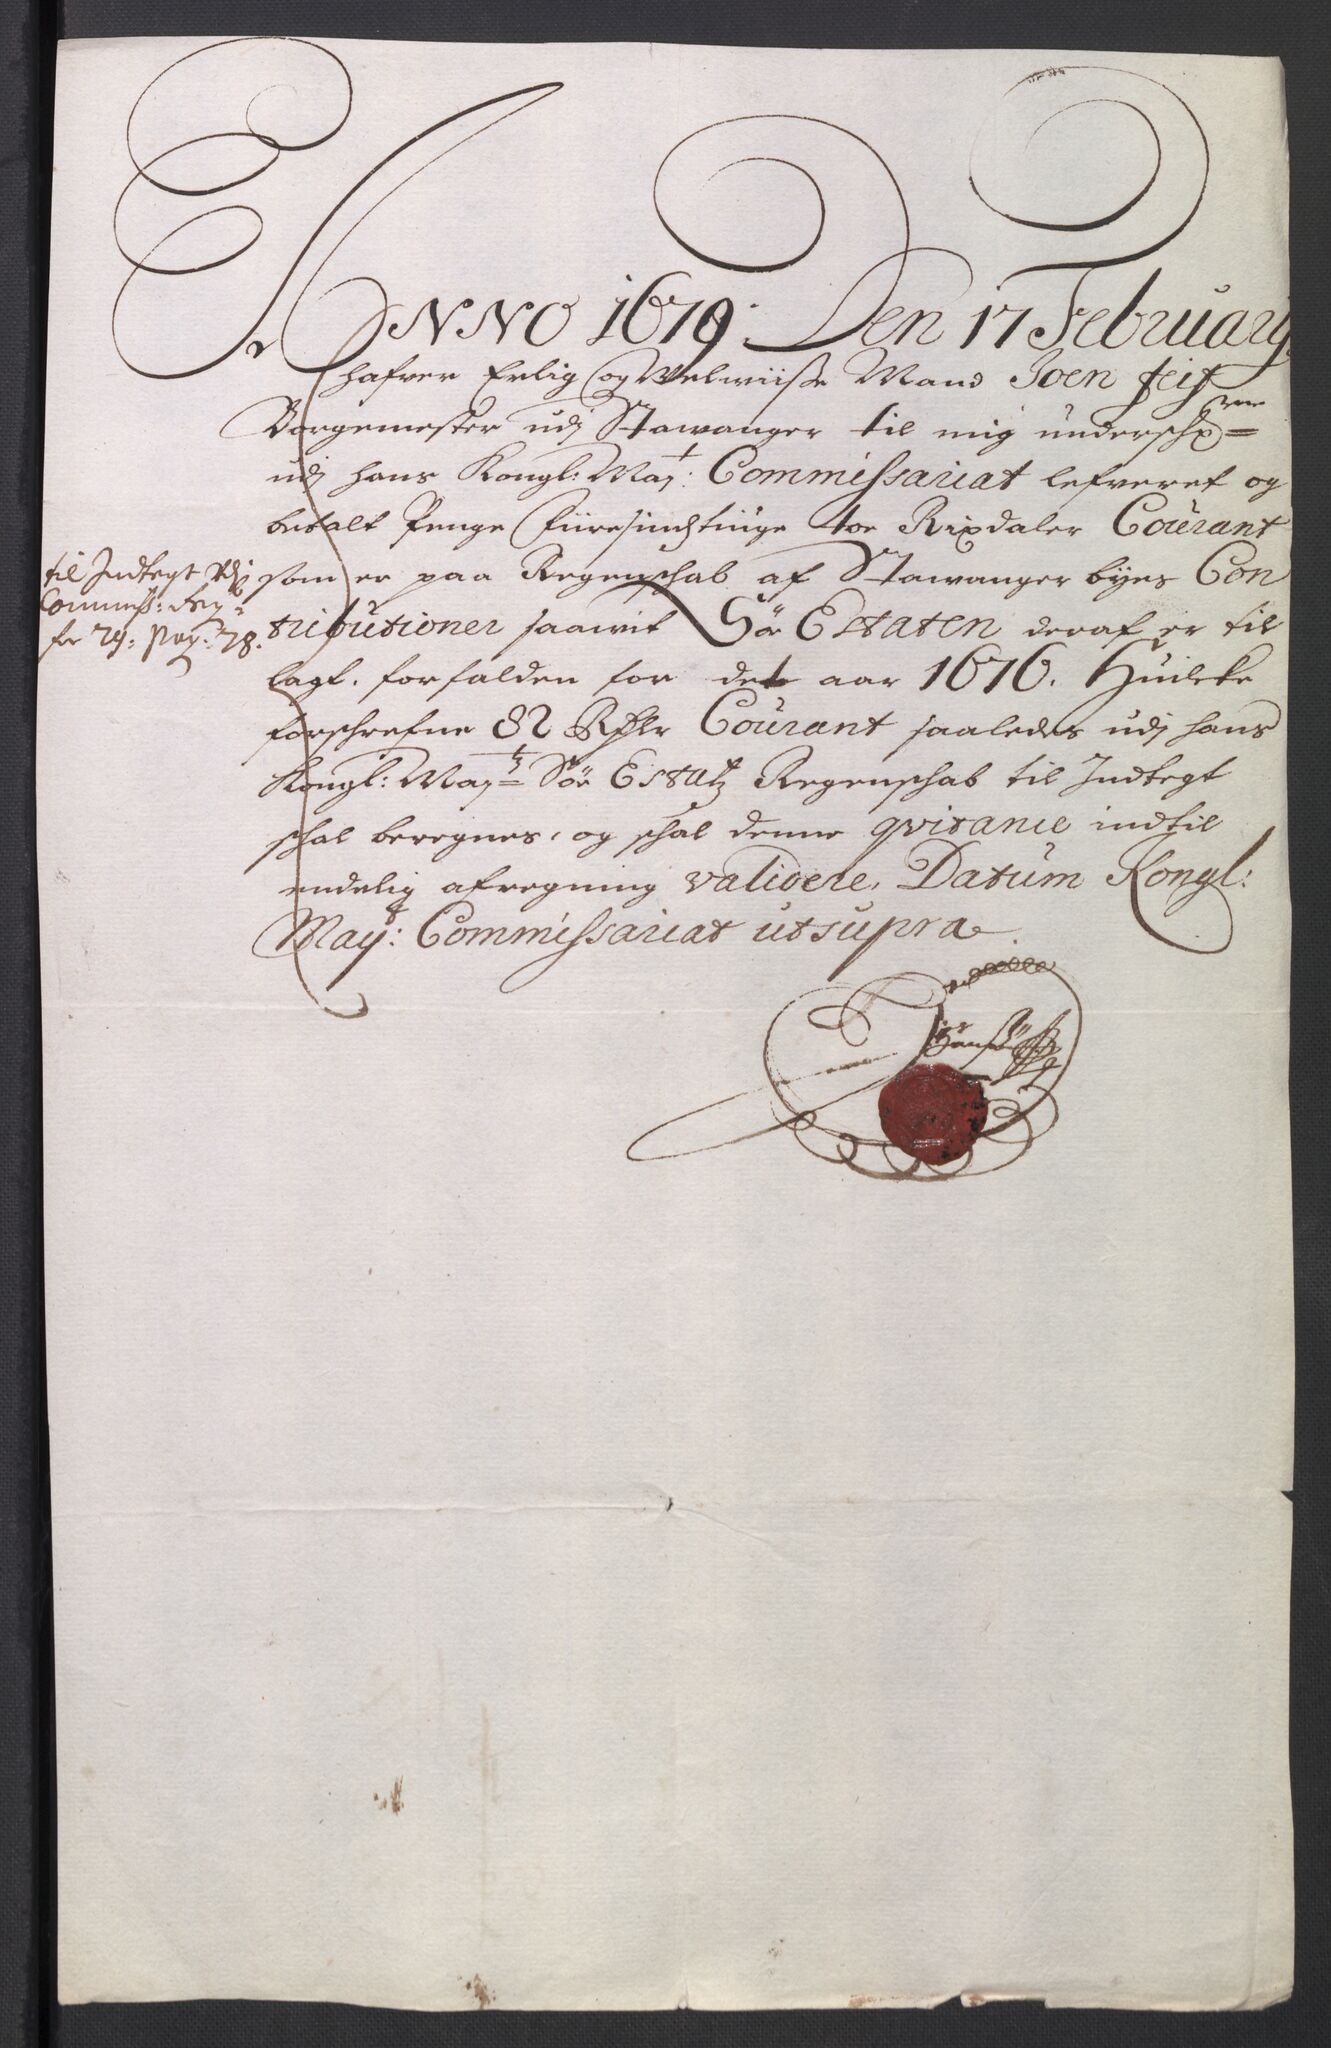 ANNO 1679. Den 17 February
hafver Erlig og Welwiisse Mand Joen Feif
Borgemester udj Stawanger til mig underschr=ne
udj hans Kongl: May:t Commissariat lefveret og
betalt Penge Fiiresindstiuge toe Rixdaler Courant
som er paa Regenschab af Stawanger byes Con
tributioner saawit Söe Estaten deraf er til
lagt, forfalden for det aar 1676. Huilcke
forschrefne 82 Rdlr Courant saaledes udj hans
Kongl: May:tz Söe Estatz Regenschab til Indtegt
schal beregnes, og schal denne qvitanie indtil
endelig afregning validere, Datum Kongl:
May:t Commissariat ut supra
til Indtegt udj
Commiss: Reg:
for
78.